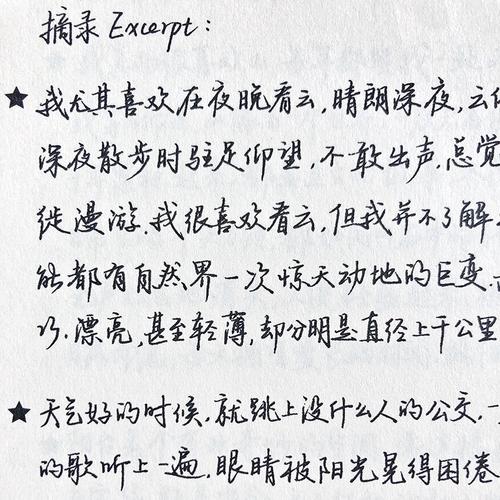 摘录 Excerpt:
★ 我尤其喜欢在夜晚看云,晴朗深夜,云
深夜散步时驻足仰望,不敢出声,总觉
徒漫游.我很喜欢看云,但我并不了解
能都有自然界一次惊天动地的巨变.
巧.漂亮,甚至轻薄,却分明是直径上千公里
★ 天气好的时候,就跳上没什么人的公交.一
的歌听上一遍.眼睛被阳光晃得困倦